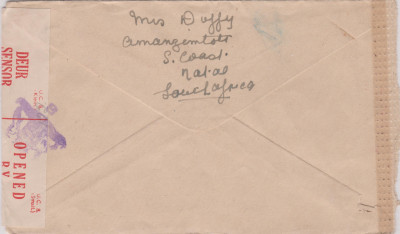 Mrs Duffy
Amanzimtoti
S. Coast
Natal
South Africa
DEUR
SENSOR
OPENED
BY
U.C. &
U.C. &